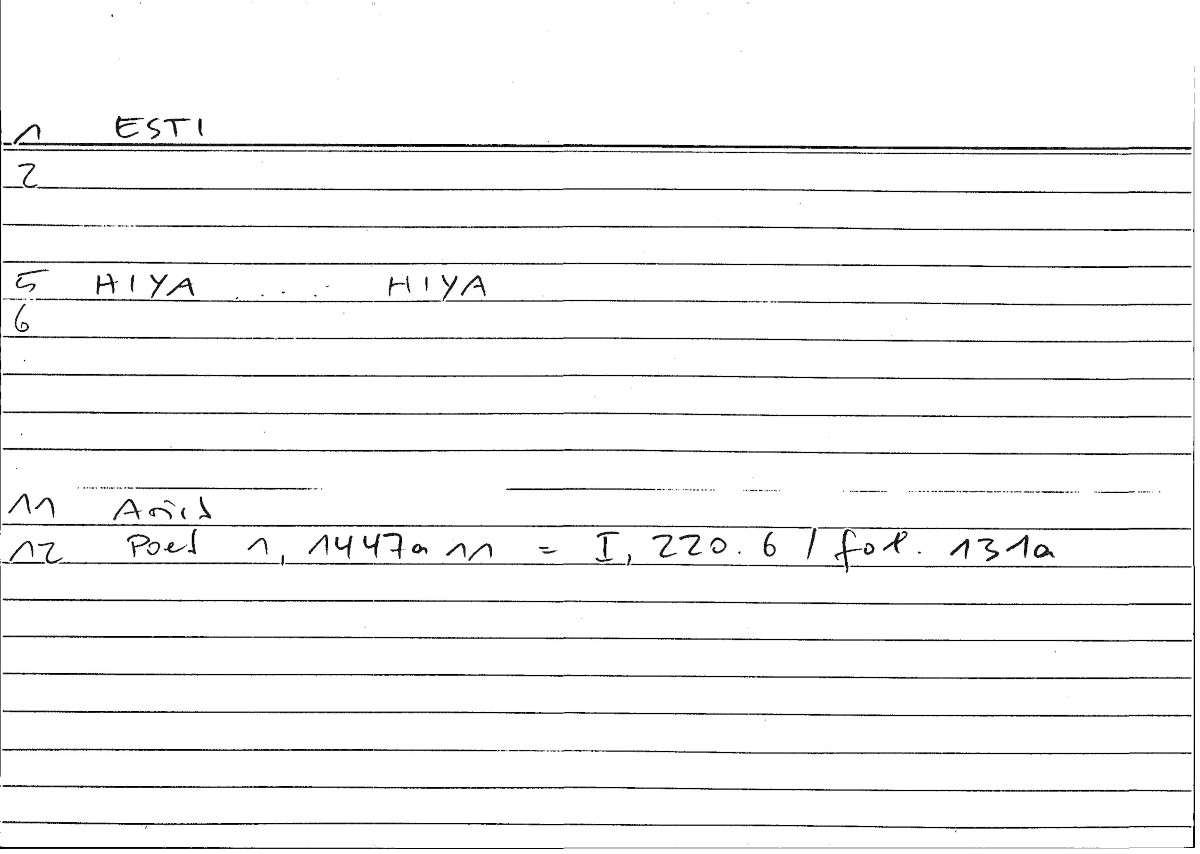 1 ESTI
2
5 HIYA . . . . HIYA
6
11 Arist
12 Poet 1, 1447a 11 = I, 220.6 / fol. 131a